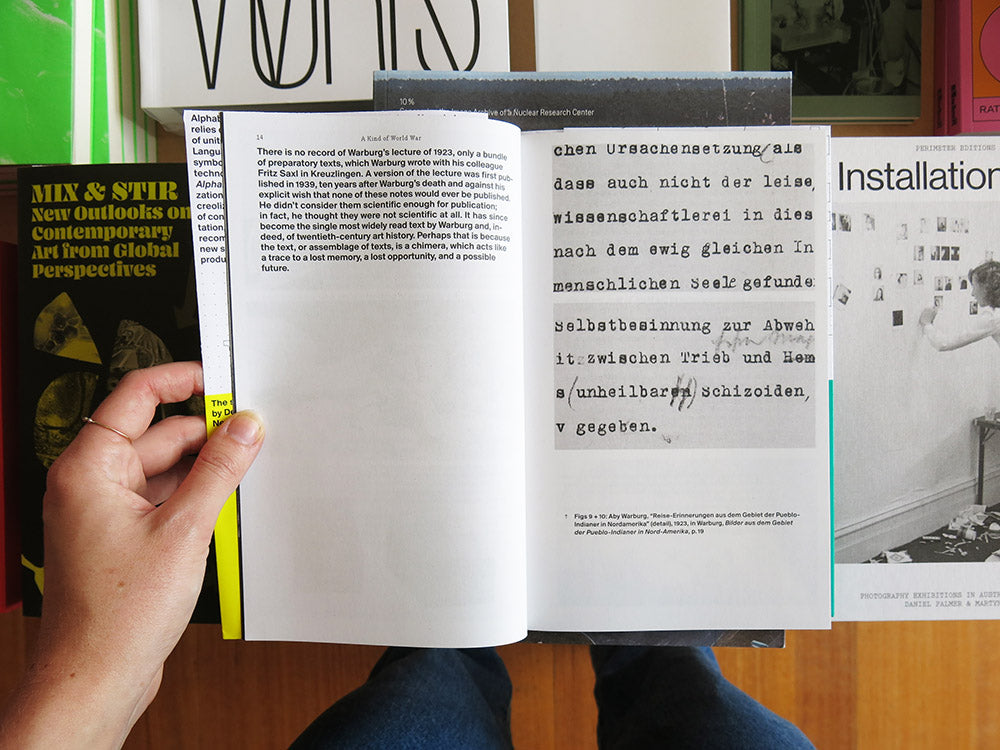 10%
Archive of a Nuclear Research Center
MIX & STIR
New Outlooks on
Contemporary
Art from Global
Perspectives
Alphab
relies
of unit
Langu
symbo
techno
Alpha
zation
creoli
of con
tation.
recom
new s
produ
The s
by De
14
A Kind of World War
There is no record of Warburg's lecture of 1923, only a bundle
of preparatory texts, which Warburg wrote with his colleague
Fritz Saxl in Kreuzlingen. A version of the lecture was first pub-
lished in 1939, ten years after Warburg's death and against his
explicit wish that none of these notes would ever be published.
He didn't consider them scientific enough for publication;
in fact, he thought they were not scientific at all. It has since
become the single most widely read text by Warburg and, in-
deed, of twentieth-century art history. Perhaps that is because
the text, or assemblage of texts, is a chimera, which acts like
a trace to a lost memory, a lost opportunity, and a possible
future.
chen Ursachensetzung als
dass auch nicht der leise,
wissenschaftlerei in dies
nach dem ewig gleichen In
menschlichen Seele gefunde
Selbstbesinnung zur Abweh
it zwischen Trieb und Hem
s (unheilbaren) Schizoiden,
v gegeben.
↑ Figs 9 + 10: Aby Warburg, "Reise-Erinnerungen aus dem Gebiet der Pueblo-
Indianer in Nordamerika" (detail), 1923, in Warburg, Bilder aus dem Gebiet
der Pueblo-Indianer in Nord-Amerika, p.19
PERIMETER EDITIONS
Installation
PHOTOGRAPHY EXHIBITIONS IN AUSTR
DANIEL PALMER & MARTYN
RAT